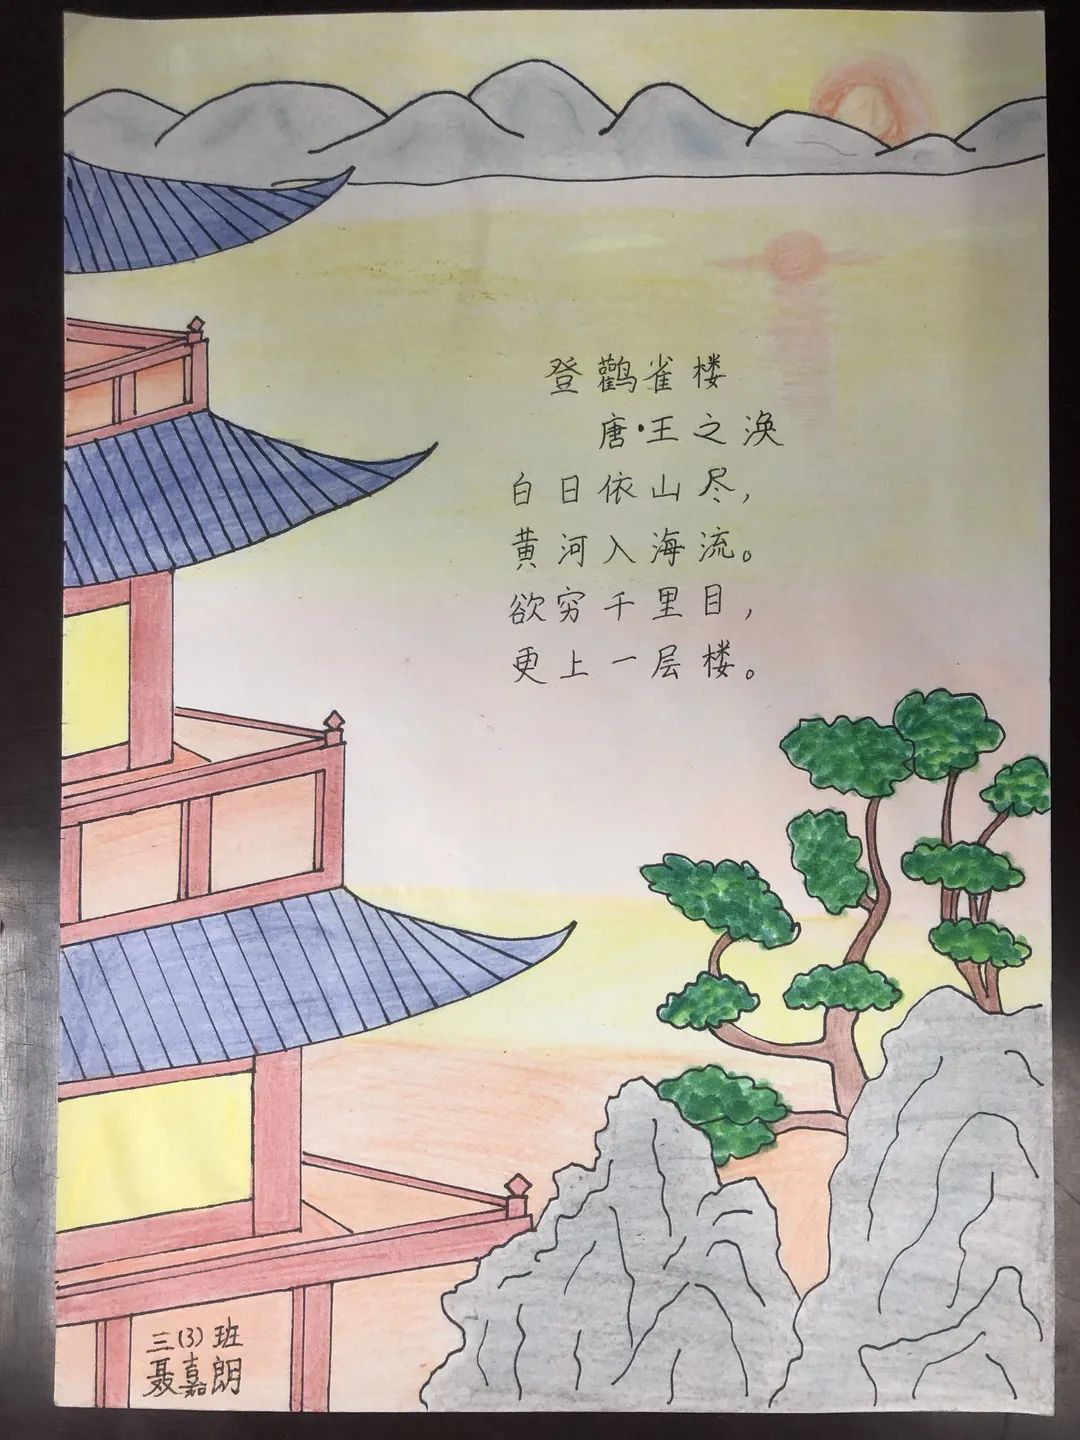 登鹳雀楼
唐·王之涣
白日依山尽，
黄河入海流。
欲穷千里目，
更上一层楼。
三(3)班
聂嘉朗